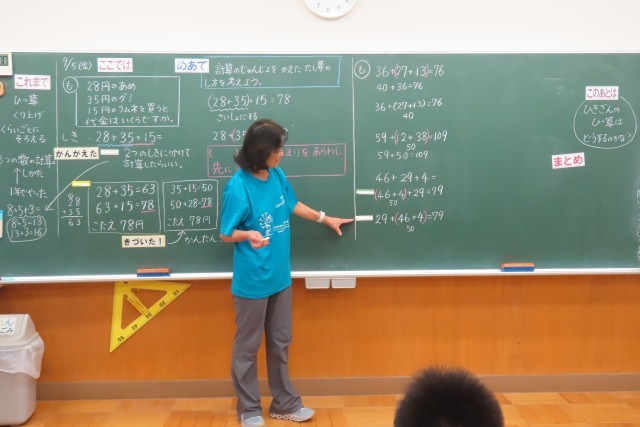 これまで
ひっ算
くり上げ
くらいごとに
そろえる
3つの数の計算
しかた
1年でやった
8+5+3=
8+5=13
13+3=16
28
+35
63
9/5(金)
ここでは
も
28円のあめ
35円のグミ
15円のラムネを買うと
代金はいくらですか。
しき 28+35+15=
かんがえた
2つのしきに分けて
計算したらいい。
28+35=63
63+15=78
こたえ 78円
35+15=50
50+28=78
こたえ 78円
きづいた!
かんたん
めあて
計算のじゅんじょを かえた たし算の
しを考えよう。
(28+35)+15=78
さいしょにする
28+(35
まりをあらわし
先に
も
36+(27+13)=76
40
36+40=76
36+(27+13)=76
40
59+(12+38)=109
50
59+50=109
46+29+4=
(46+4)+29=79
50
29+(46+4)=79
50
このあとは
ひきざんの
ひっ算は
どうするのかな?
まとめ